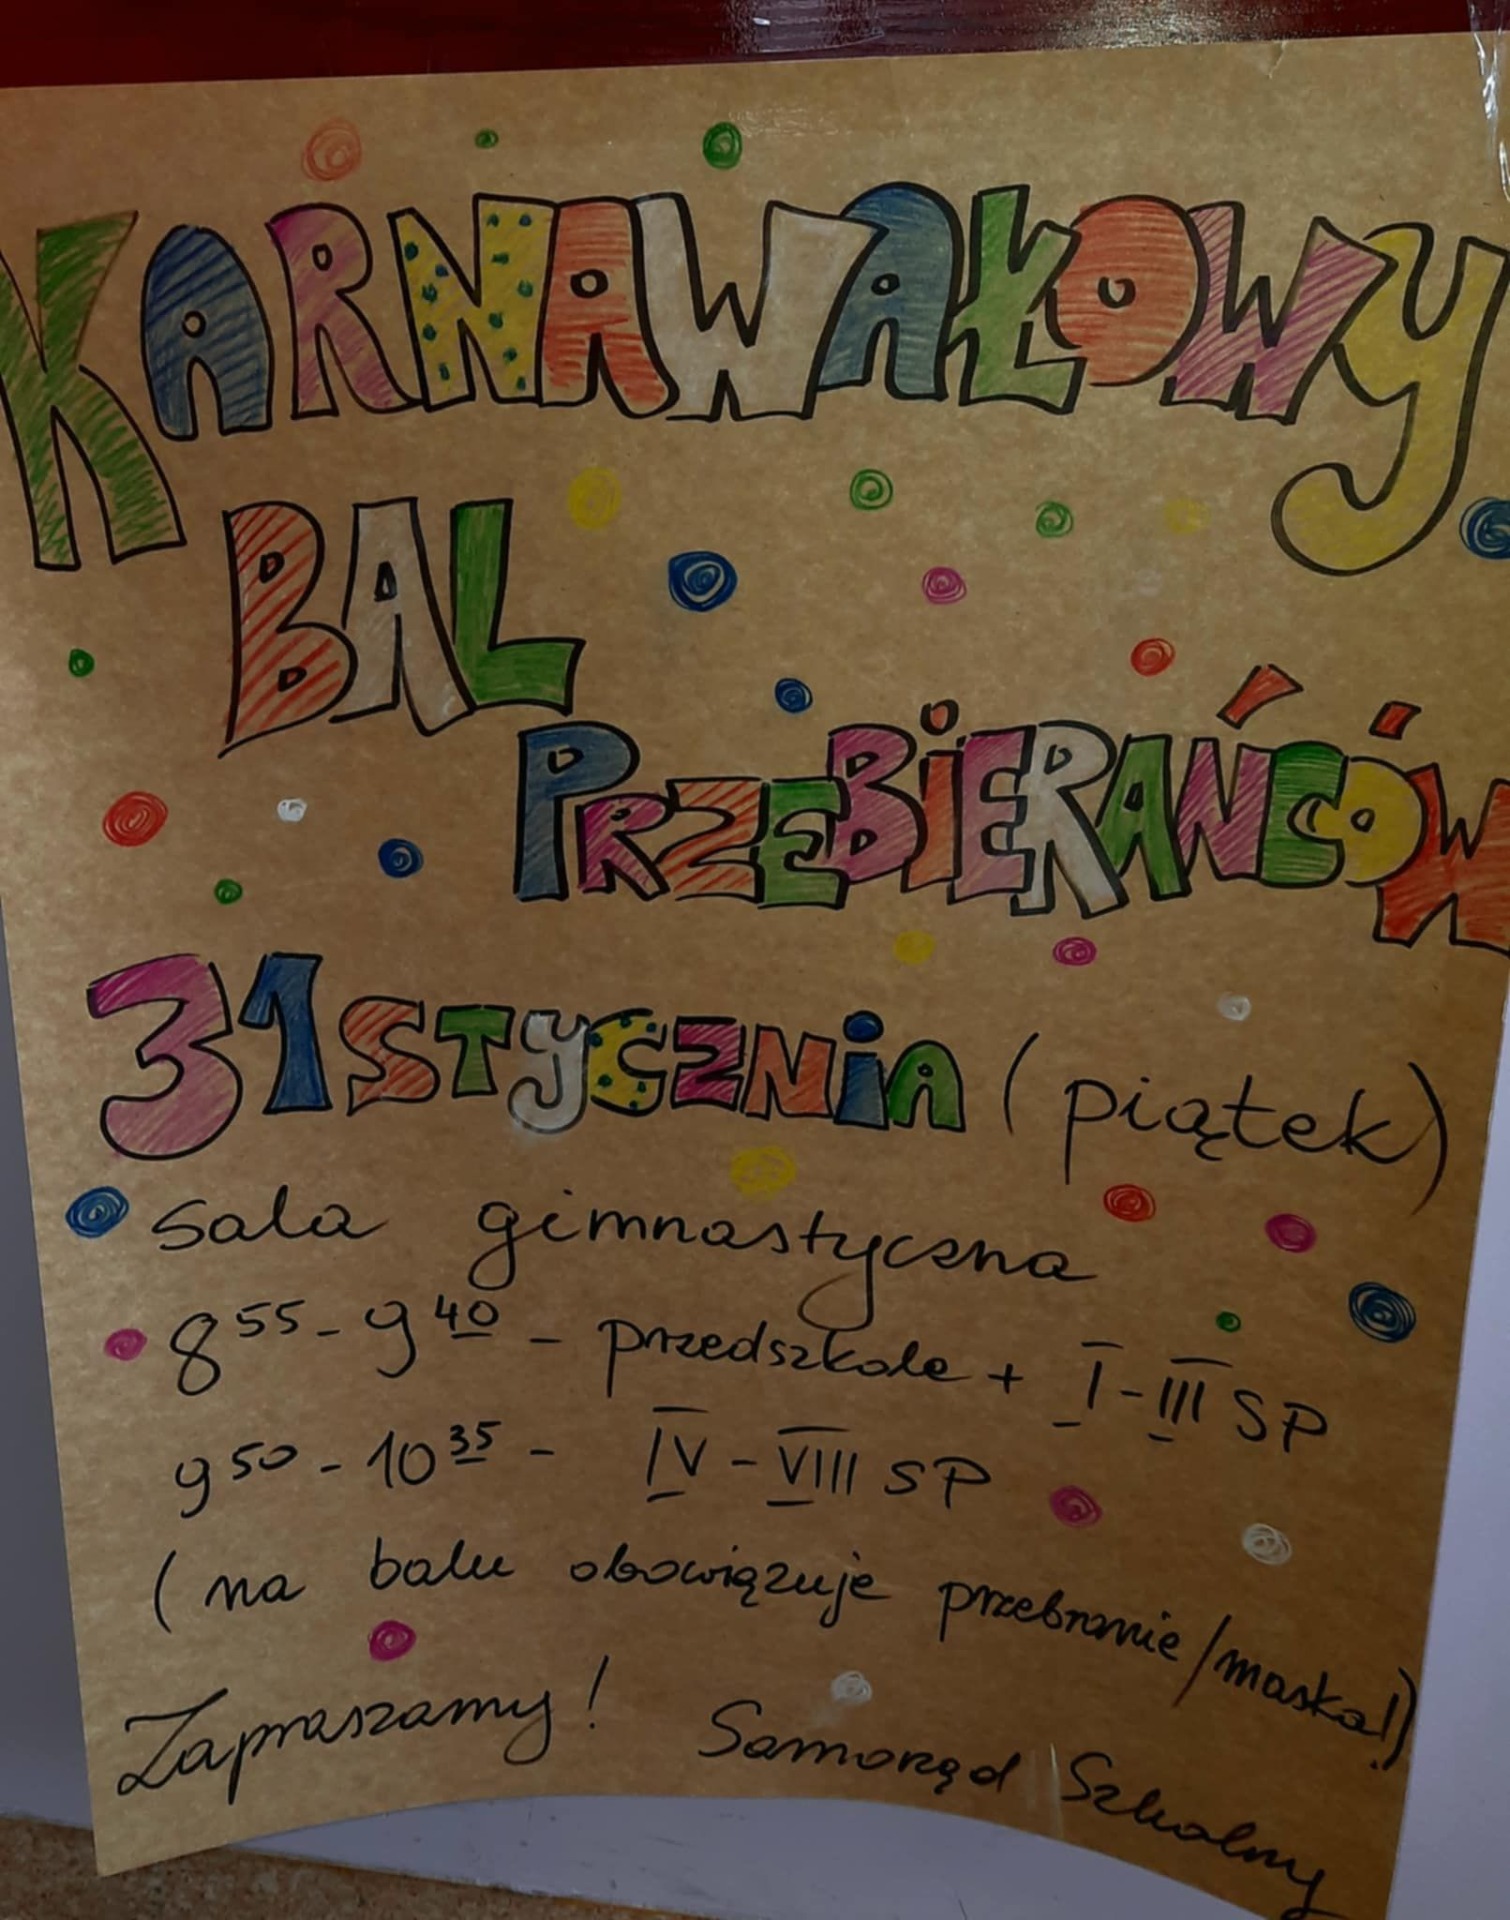 KARNAWAŁOWY
BAL
PRZEBIERAŃCÓW
31 STYCZNIA (piątek)
sala gimnastyczna
8 55 - 9 40 - przedszkole + I - III SP
9 50 - 10 35 - IV - VIII SP
(na balu obowiązuje przebranie/maska!)
Zapraszamy! Samorząd Szkolny